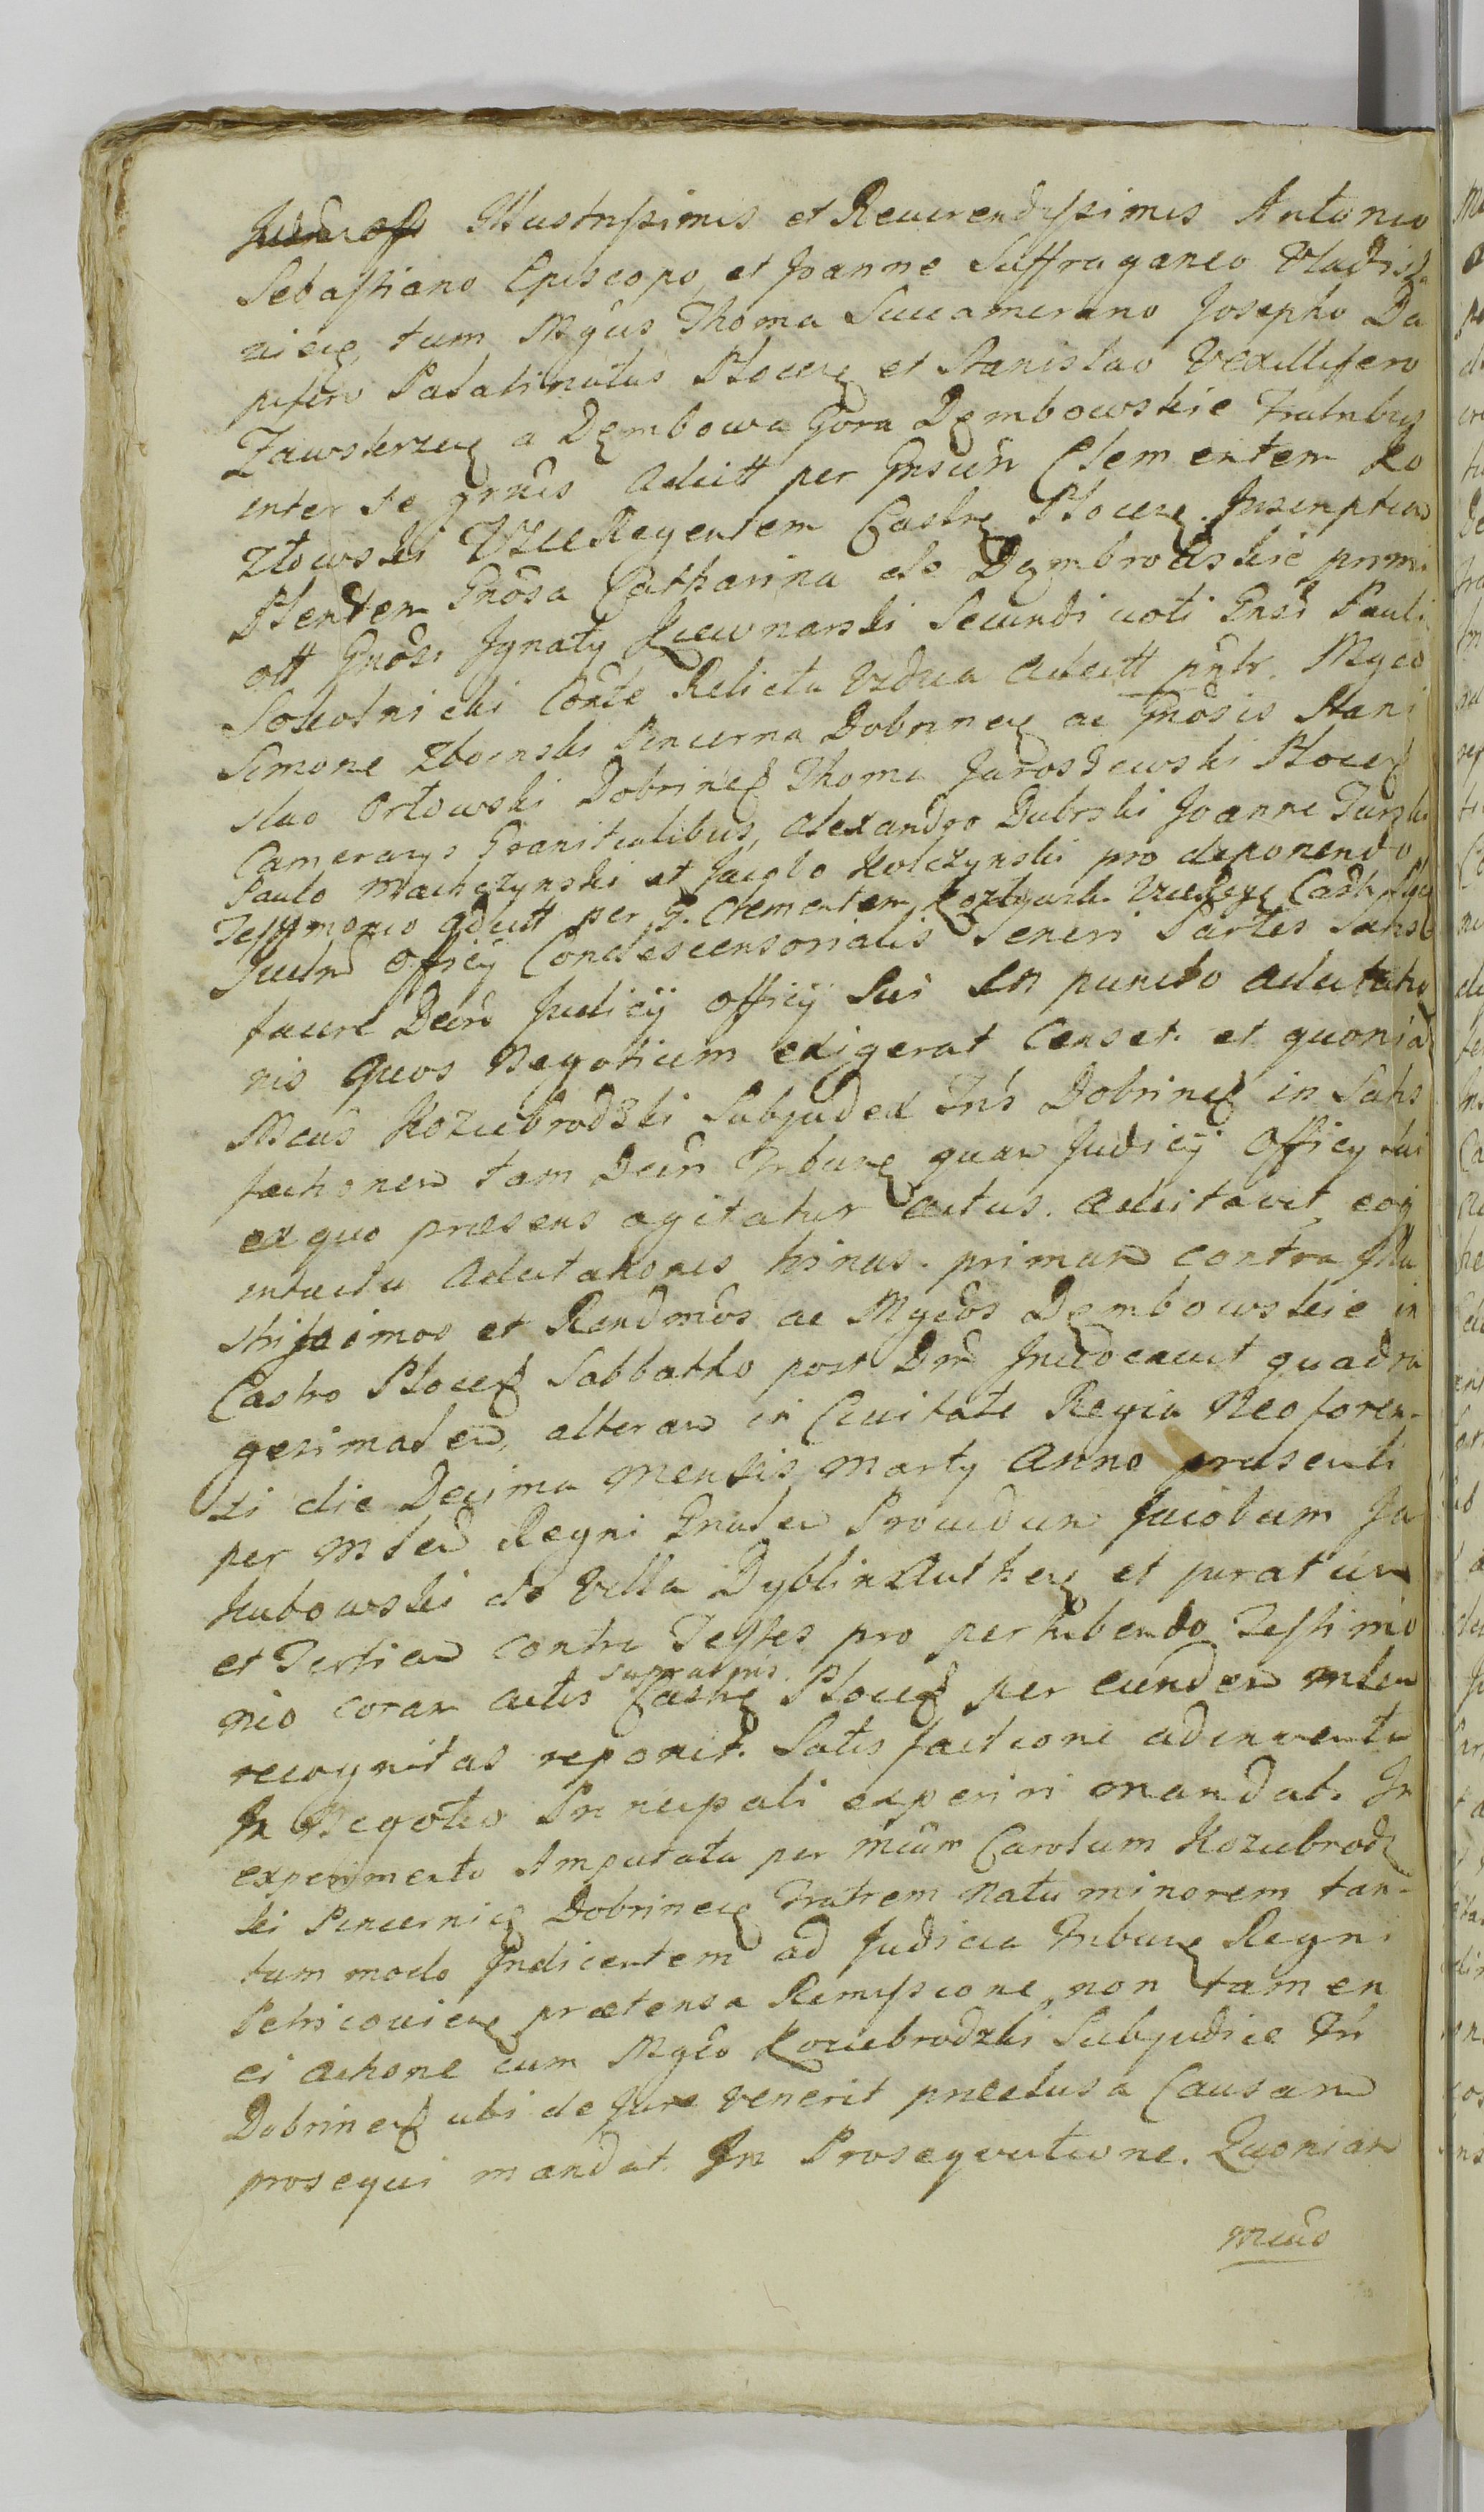 Illustrissimis et Reuerendissimis Antonio
Sebastiano Episcopo, et Joanne Suffraganeo Vladisl
tum Mgcis Thoma Succamerano Josepho Da
pifero Palatinatus Plocen et Stanislao Vexillifero
Zawskrzen a Dembowa Gora Dembowskie Fratribus
inter se grnis Adcitt per Gnsum Clementem Ko
złowski ViceRegentem Castri Plocen Inscriptiu
Htentem Gnosa Catharina de Dembrowskie primi
ott Gnosi Ignaty Secundi uoti Gnsi Pauli
Sokolnicki Conte Relicta Vidua Adcitt Mgco
Simone Zboinski Pincerna Dobrinen ac Gnosis Stani
slao Orłowski Dobrinen Thoma Jarosewski Plocen
Camerarys Granitialibus, Alexandro Dubrski Joanne Turski
Paulo Machczynski et Kolczynski pro deponendo
Testimonio adcitt per G. Clementem
Officij Condescensorialis Generi Partes Satis
facere Decr Judicij Officij Sui in puncto Adcitatio
nis quos Negotium exigerat Censet. et quonia
Mcus Koziebrodzki Subjudex Tris Dobrinen in Satis
factionem tam Decri Tribune quam Judicij Officij sui
ex quo præsens agitatur actus. adcitavit eoq
intuitu Adcitationes trinas. primam contra Illu
strissimos et Rendmos ac Mgcos Dembowskie in
Castro Plocen Sabbatho post Dnm Inuocauit quadra
gesimalem, alteram in Ciuitate Regia Neoforen
si die Decima Mensis Marty Anno præsenti
per Mlem Regni Gnalem Prouidum Jacobum Ja
kubowski de Villa Dyblin Authen et juratum
et Tertiam contra Testes pro perhibendo Testimo
nio coram actis Castri Plocen per eundem Mlem
recognitas reponit. Satisfactione adinventa
In Negotio Principali experiri mandat. In
experimento Amputata per Mcum Carolum Kozibrodz
ki Pincernic Dobrinen Fratrem natu minorem tan-
tum modo Indicentem ad Judicia Tribune Regni
Petricovien prætensa Remissione, non tamen
ei actione cum Mgco Koziebrodzki Subjudice Tri
Dobrinen ubi de Jure venerit præclusa Causam
prosequi mandat. In Prosequutione. Quoniam
Mcus